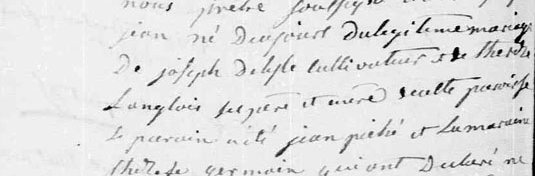 nous prêtre soussigné
jean né Daujourt du legitime mariage
De joseph Delisle cultivateur et de therese
Langlois ses pere et mere de cette paroisse
Le parain a été jean piché et La maraine
therese germain qui ont Declaré ne